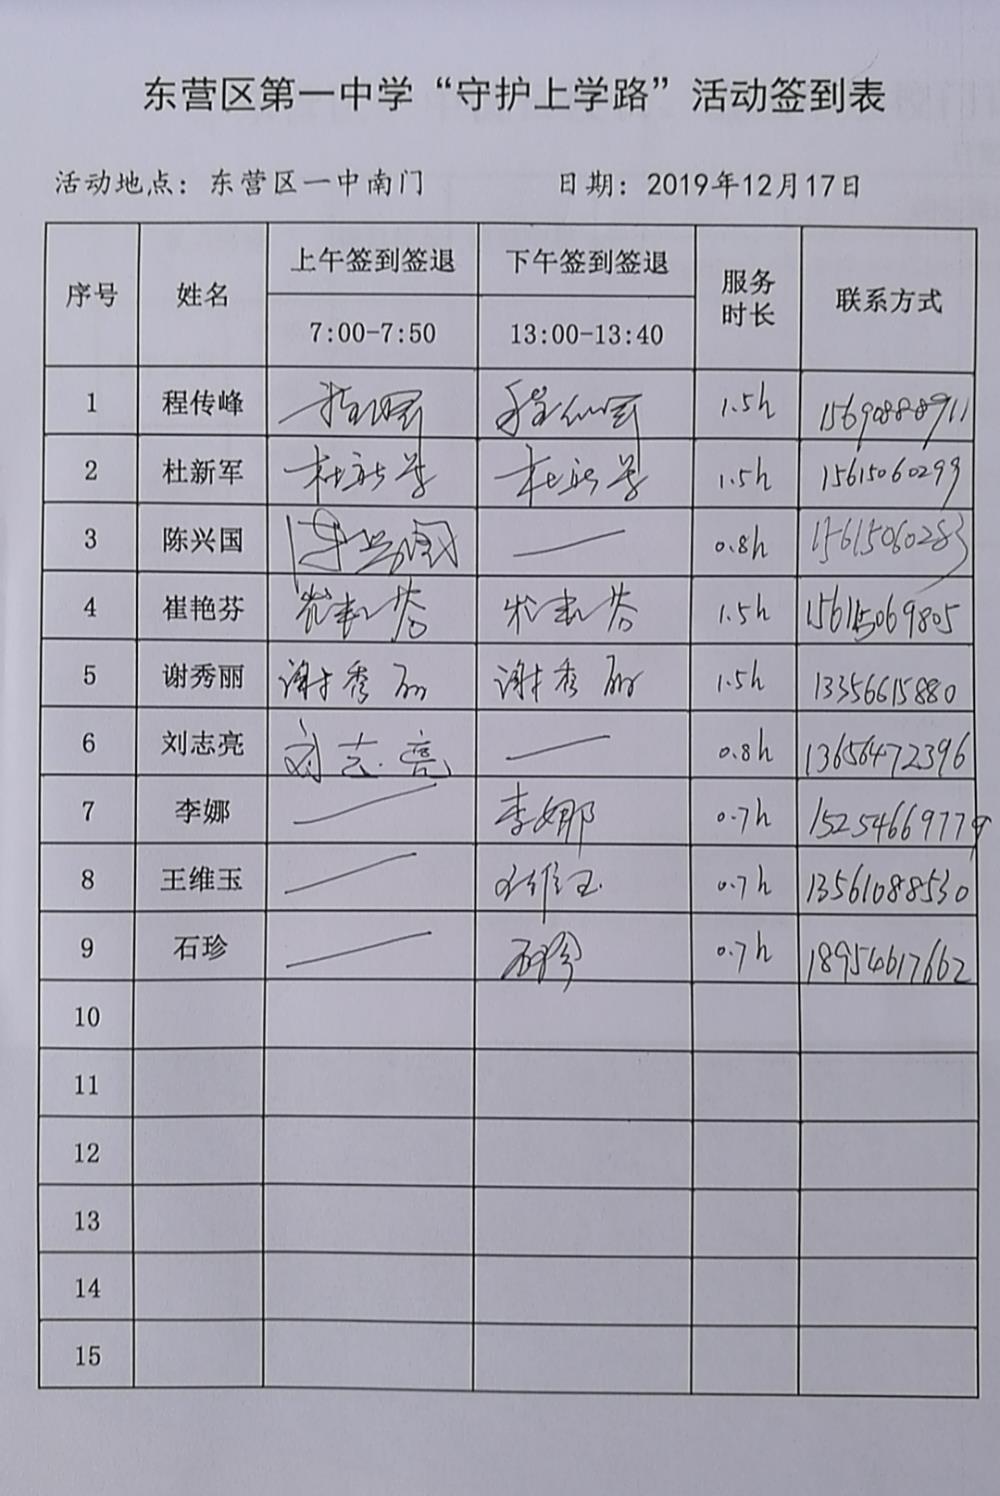 东营区第一中学“守护上学路”活动签到表
活动地点：东营区一中南门 日期：2019年12月17日
序号 姓名 上午签到签退 下午签到签退 服务时长 联系方式
7:00-7:50 13:00-13:40
1 程传峰 程传峰 程传峰 1.5h 15690888911
2 杜新军 杜新军 杜新军 1.5h 15615060299
3 陈兴国 陈兴国 — 0.8h 15615060283
4 崔艳芬 崔艳芬 崔艳芬 1.5h 15615069805
5 谢秀丽 谢秀丽 谢秀丽 1.5h 13356615880
6 刘志亮 刘志亮 — 0.8h 13656472396
7 李娜 — 李娜 0.7h 15254669779
8 王维玉 — 王维玉 0.7h 13561088530
9 石珍 — 石珍 0.7h 18954617662
10
11
12
13
14
15